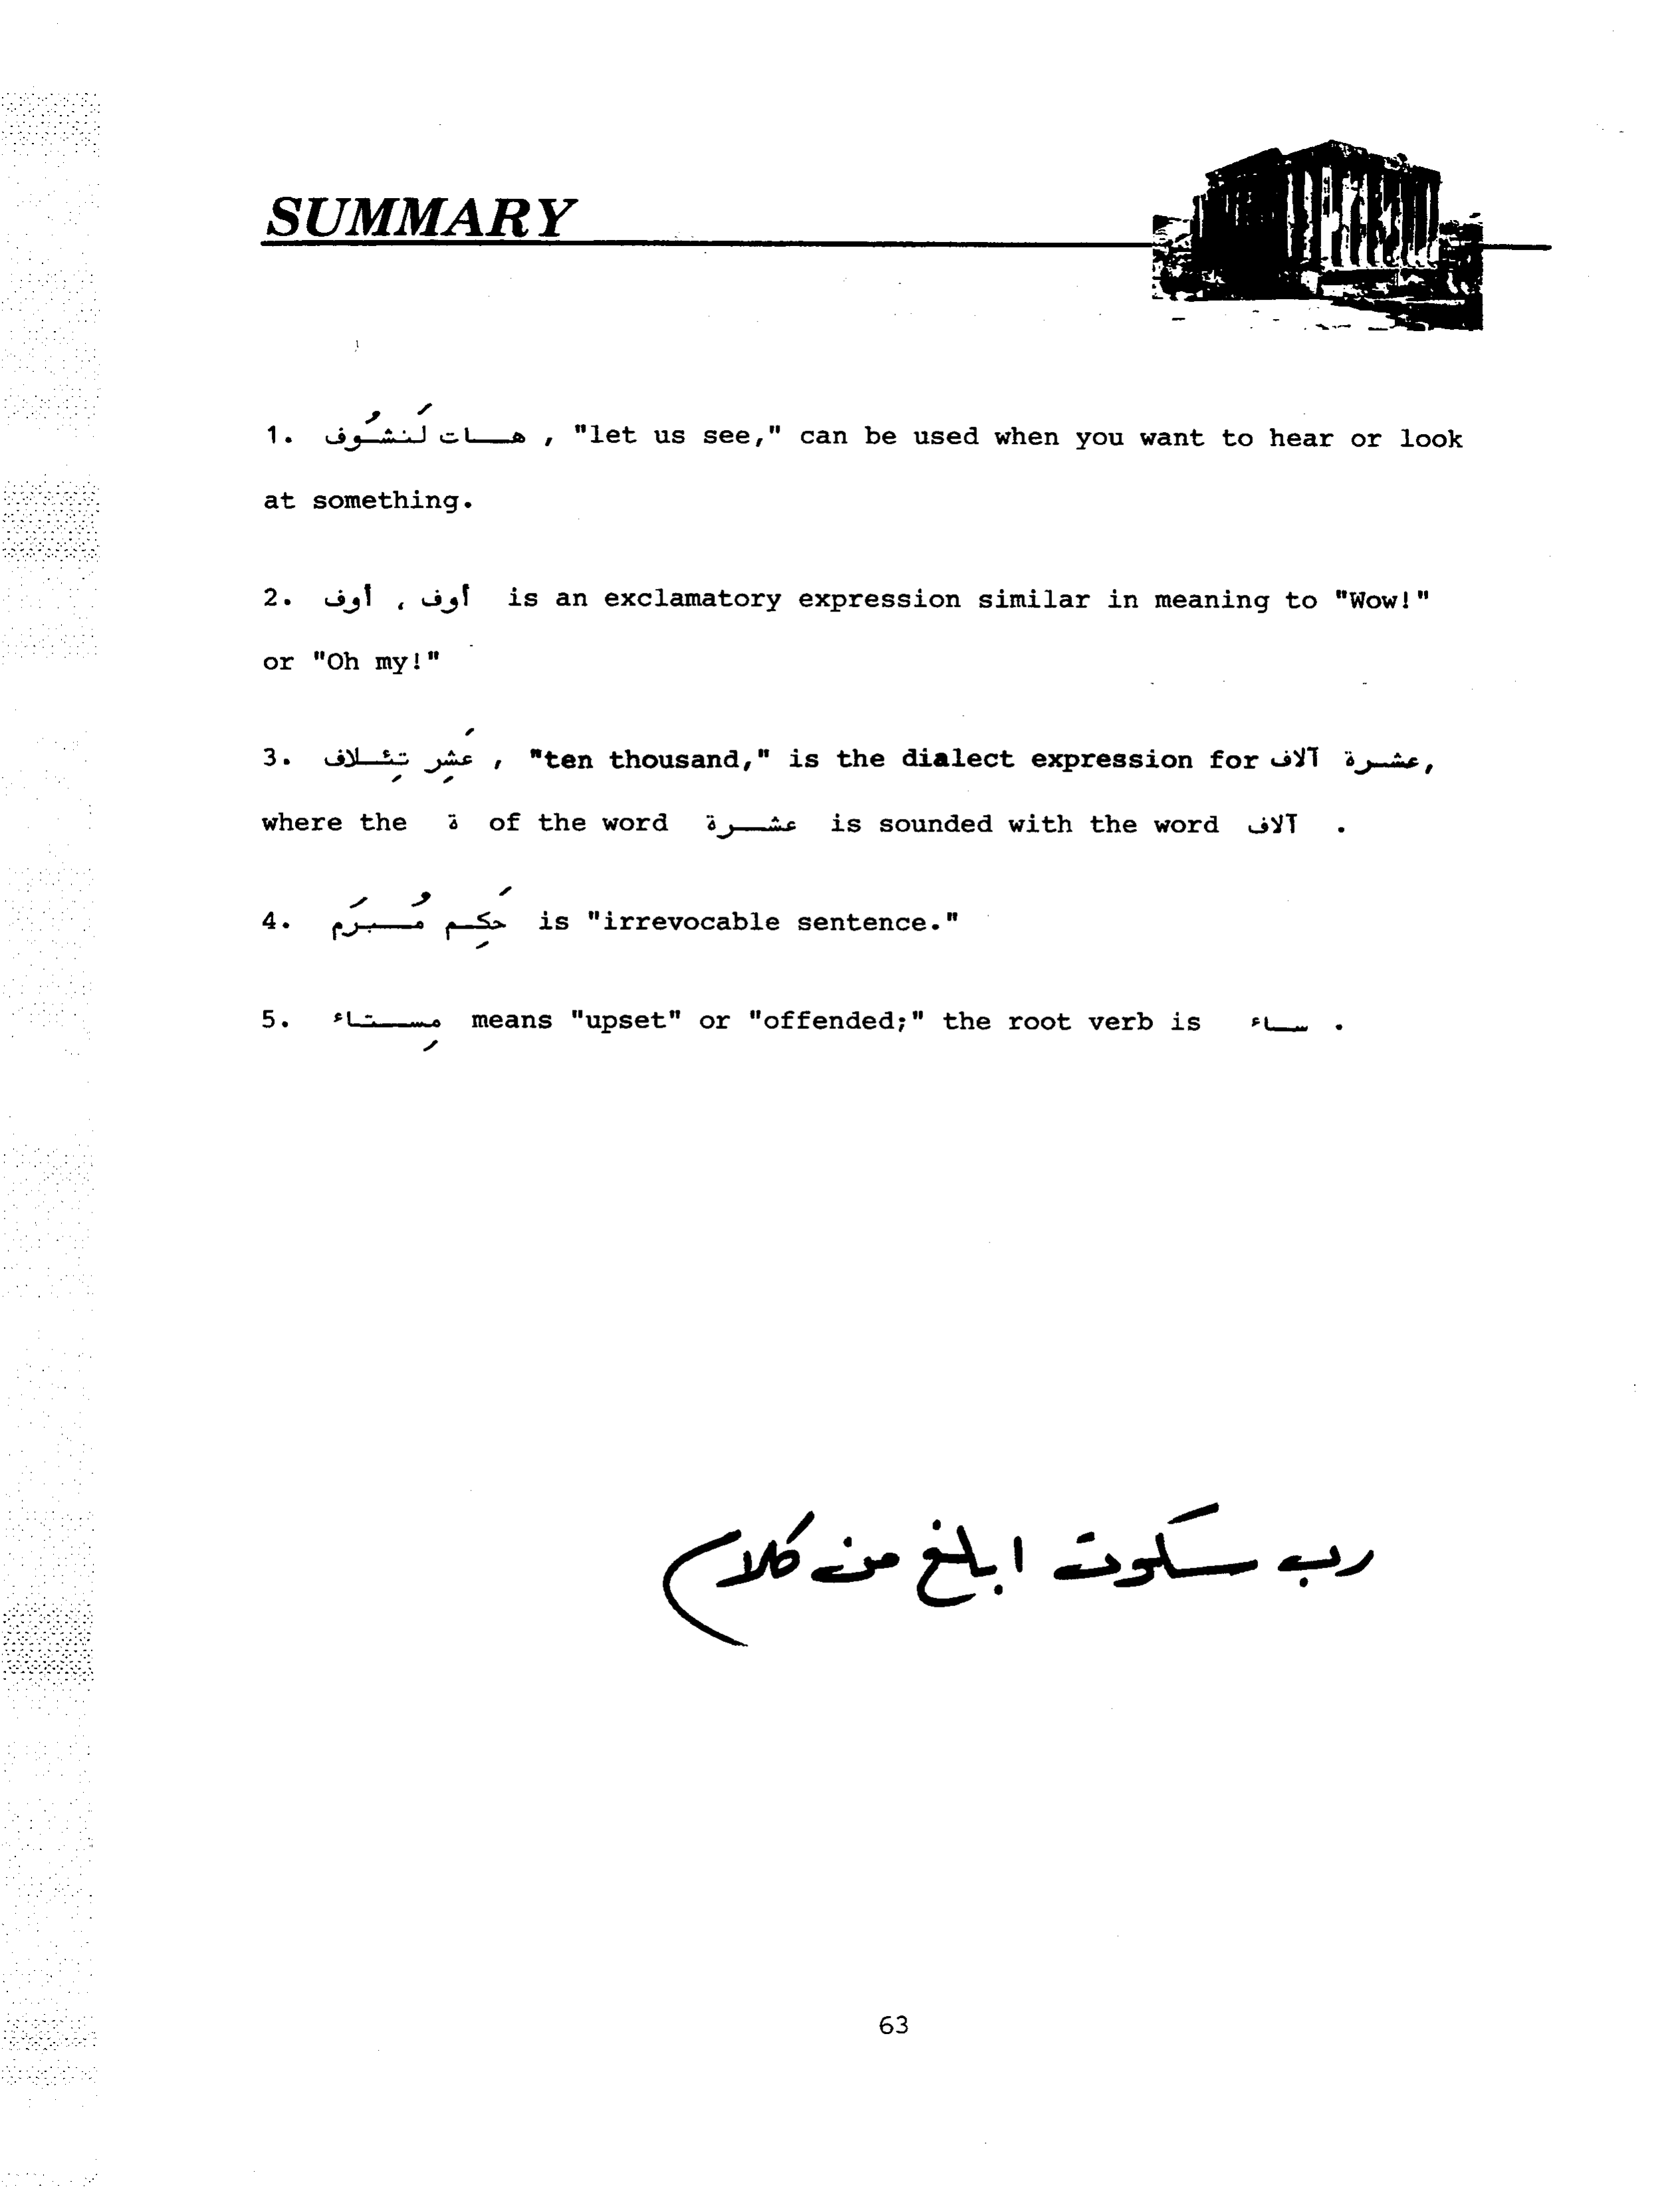 SUMMARY
1. هـــات لَنشُوف , "let us see," can be used when you want to hear or look
at something.
2. أوف ، أوف is an exclamatory expression similar in meaning to "Wow!"
or "Oh my!"
3. عَشِر تِئـــلاف , "ten thousand," is the dialect expression for عشـــرة آلاف,
where the ة of the word عشـــرة is sounded with the word آلاف .
4. حَكِـم مُـــبرَم is "irrevocable sentence."
5. مِســـتاء means "upset" or "offended;" the root verb is ســـاء .
رب سكوت ابلغ من كلام
63